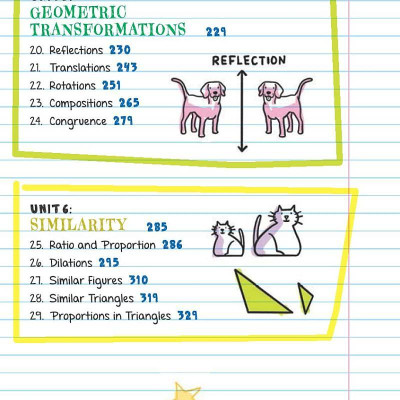 GEOMETRIC
TRANSFORMATIONS 229
20. Reflections 230
21. Translations 243
22. Rotations 251
23. Compositions 265
24. Congruence 279
REFLECTION
UNIT 6:
SIMILARITY 285
25. Ratio and Proportion 286
26. Dilations 295
27. Similar Figures 310
28. Similar Triangles 319
29. Proportions in Triangles 329